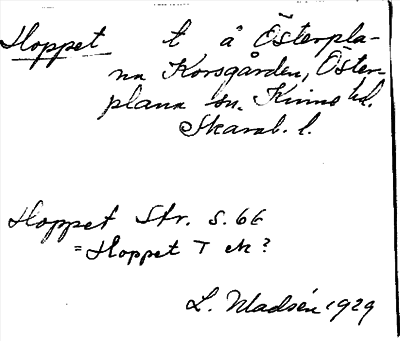 Hoppet t å Österpla-
na Korsgården, Öster-
plana sn. Kinne hd.
Skarab. l.
Hoppet Str. s. 66
= Hoppet T ek?
L. Madsén 1929